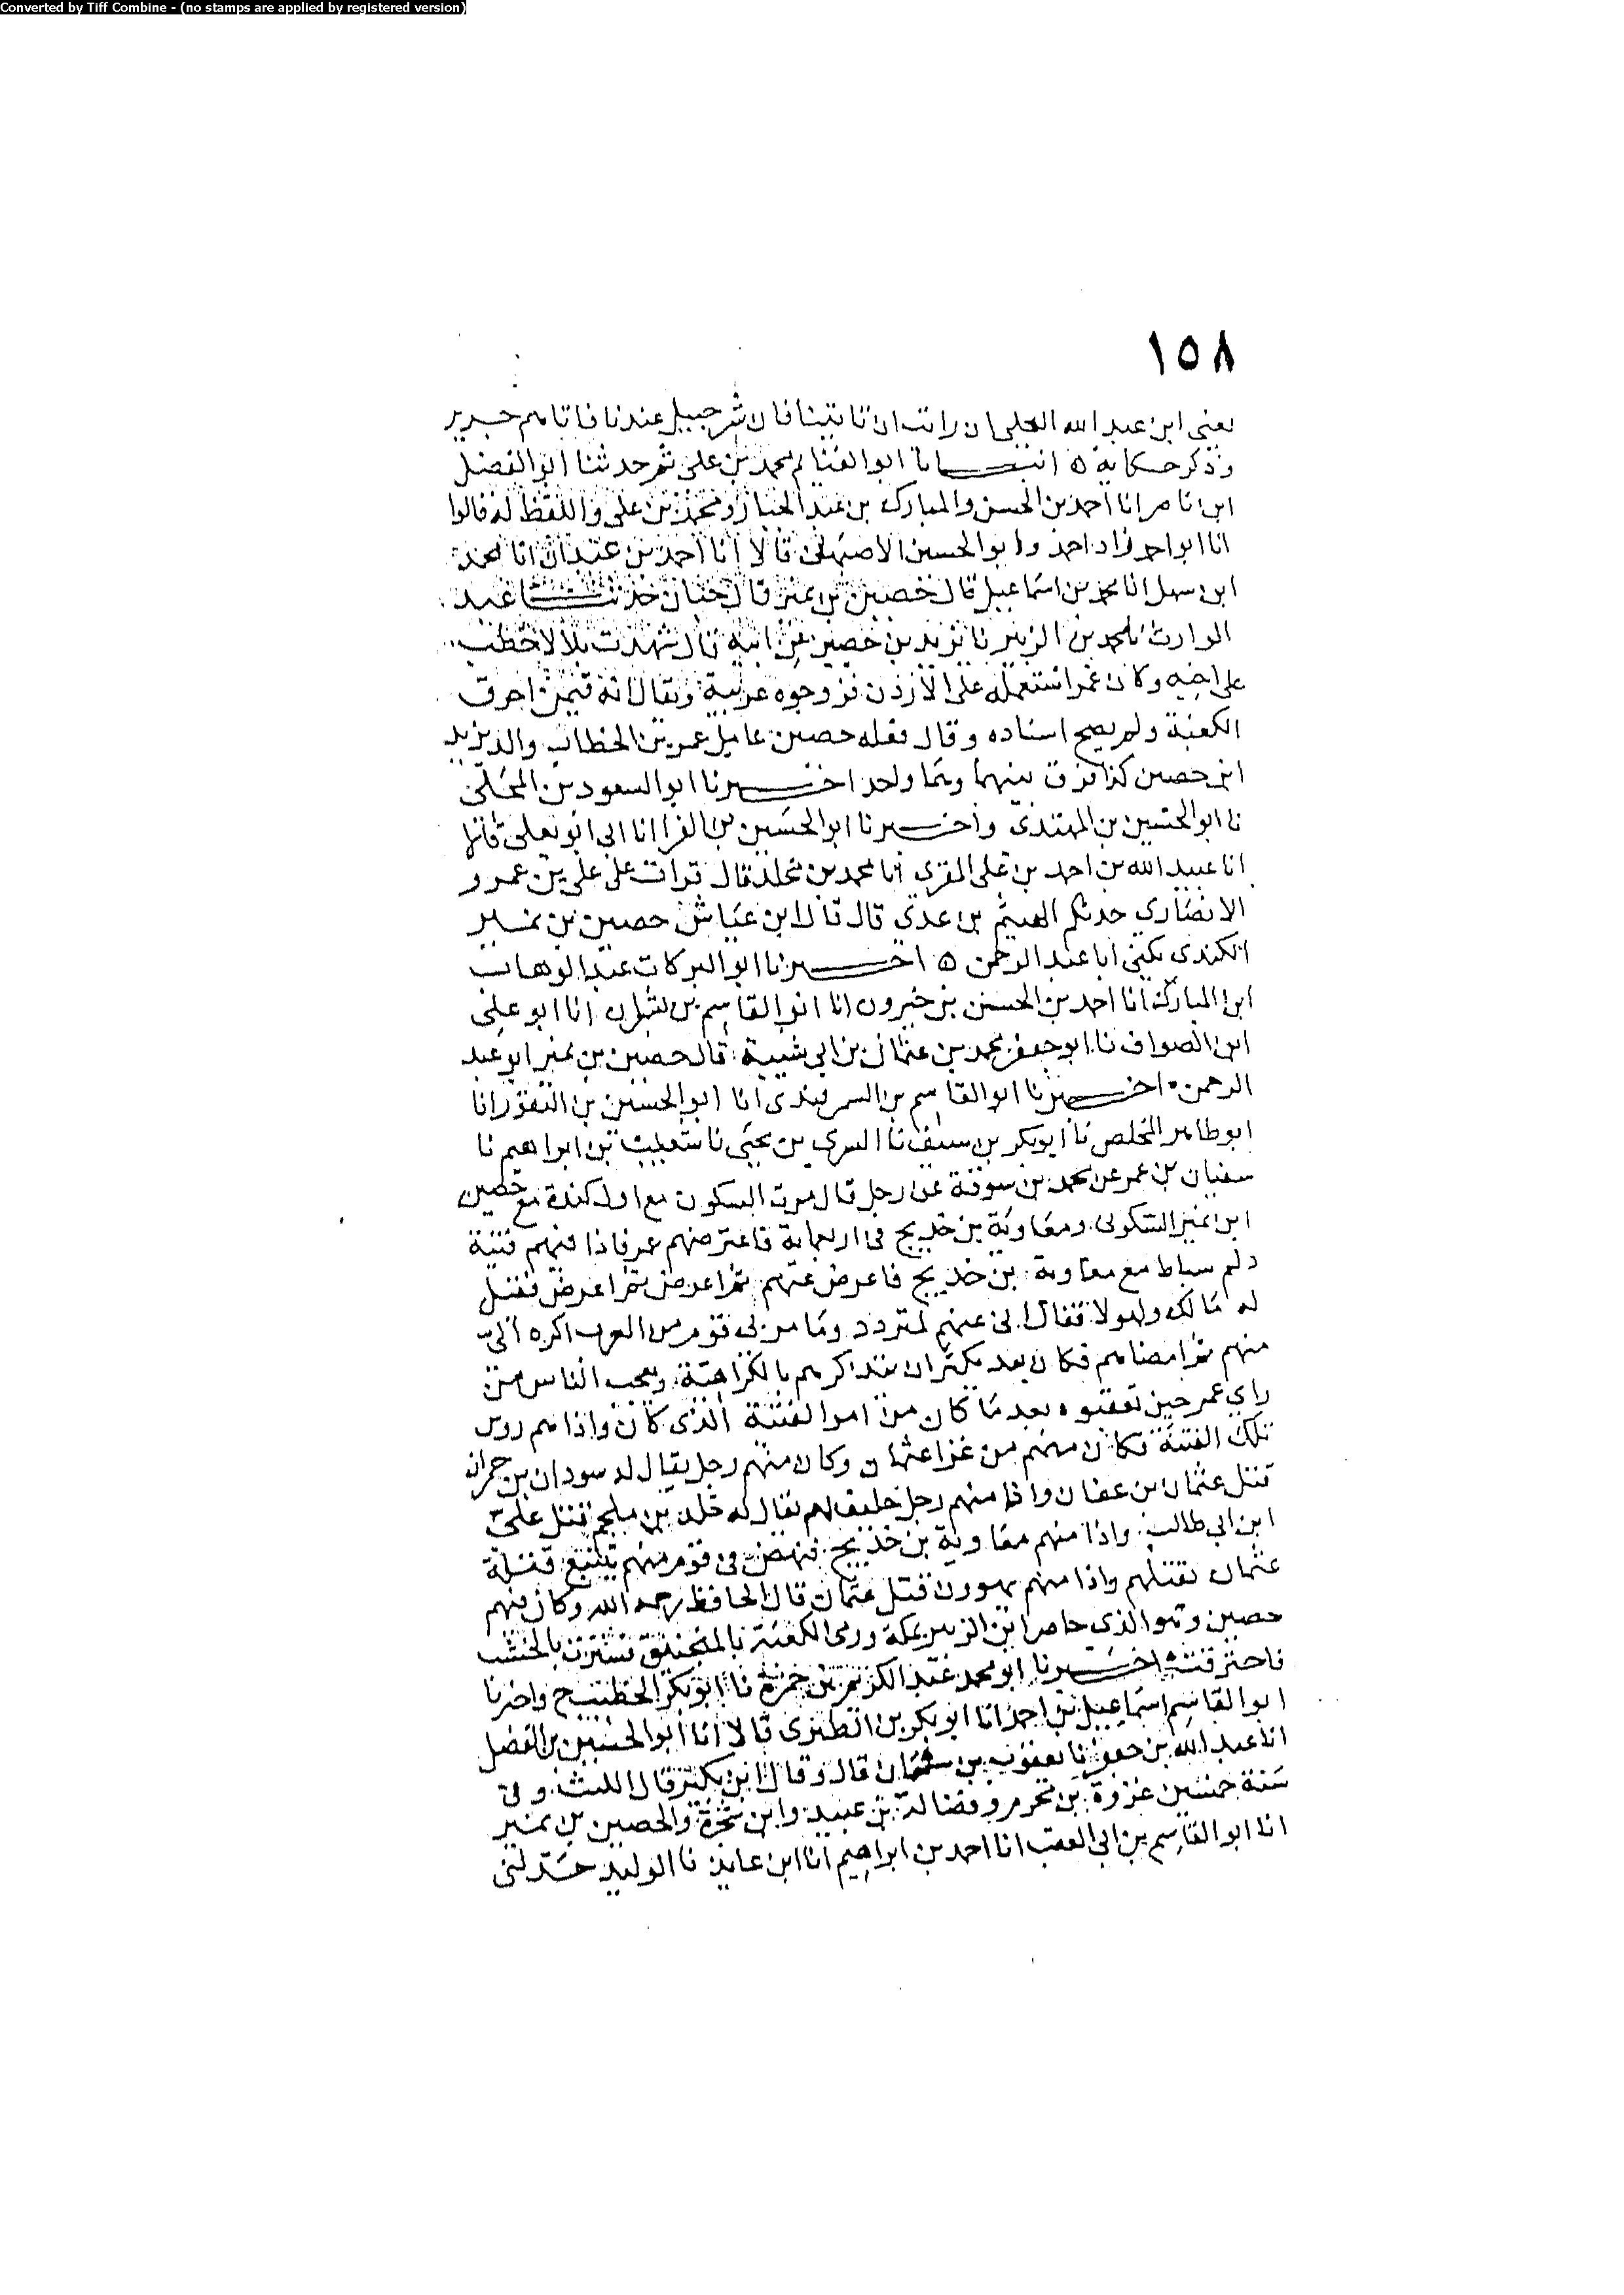 Converted by Tiff Combine - (no stamps are applied by registered version)
١٥٨
يعني ابن عبد الله البجلي ان رايت ان تاتينا فان شرحبيل عندنا فاتاهم جرير
وذكر حكاية ٥ انبــانا ابو الغنايم محمد بن علي ثم حدثنا ابو الفضل
ابن ناصر انا احمد بن الحسن والمبارك بن عبد الجبار ومحمد بن علي واللفظ له قالوا
انا ابو احمد زاد احمد وابو الحسين الاصبهاني قالا انا احمد بن عبدان انا محمد
ابن سهل انا محمد بن اسماعيل قال حصين بن نمير قال حدثنا عبد
الوارث نا محمد بن الزبير نا يزيد بن حصين عن ابيه قال شهدت بلالا خطب
على اخيه وكان عمر استعمله على الاردن فزوجوه عربية ويقال انه فيمن احرق
الكعبة ولم يصح اسناده وقال قبله حصين عامل عمر بن الخطاب والد يزيد
ابن حصين كذا فرق بينهما وهما واحد اخبــرنا ابو السعود بن المجلي
نا ابو الحسين بن المهتدي واخبــرنا ابو الحسين بن الفرا انا ابي ابو يعلى قالا
انا عبيد الله بن احمد بن علي المقري انا محمد بن مخلد قال قرات على علي بن عمرو
الانصاري حدثكم الهيثم بن عدي قال قال ابن عياش حصين بن نمير
الكندي يكنى ابا عبد الرحمن ٥ اخبــرنا ابو البركات عبد الوهاب
ابن المبارك انا احمد بن الحسن بن خيرون انا ابو القاسم بن بشران انا ابو علي
ابن الصواف نا ابو جعفر محمد بن عثمان بن ابي شيبة قال حصين بن نمير ابو عبد
الرحمن ٥ اخبــرنا ابو القاسم بن السمرقندي انا ابو الحسين بن النقور انا
ابو طاهر المخلص نا ابو بكر بن سيف نا السري بن يحيى نا شعيب بن ابراهيم نا
سفيان بن عمر عن محمد بن سوقة عن رجل قال مرت السكون مع اول كندة مع حصين
ابن نمير السكوني ومعاوية بن خديج في اربعماية فاعترضهم عمر فاذا فيهم فتية
دلم سباط مع معاوية بن خديج فاعرض عنهم ثم اعرض ثم اعرض فقيل
له مالك ولهولا فقال اني عنهم لمتردد وما مر بي قوم من العرب اكره الي
منهم ثم امضاهم فكان بعد يكثر ان يتذاكرهم بالكراهية وتعجب الناس من
راي عمر حين تعقبوه بعد ما كان من امر الفتنة الذي كان واذا هم روس
تلك الفتنة فكان منهم من غزا عثمان وكان منهم رجل يقال له سودان بن حمران
قتل عثمان بن عفان واذا منهم رجل حليف لهم يقال له خلد بن ملجم قتل علي
ابن ابي طالب واذا منهم معاوية بن خديج فنهض في قوم منهم يتتبع قتلة
عثمان يقتلهم واذا منهم يهوون قتل عثمان قال الحافظ رحمه الله وكان فيهم
حصين وهو الذي حاصر ابن الزبير بمكة ورمى الكعبة بالمنجنيق فسترت بالخشب
فاحترقت اخبــرنا ابو محمد عبد الكريم بن حمزة نا ابو بكر الخطيب ح واخبرنا
ابو القاسم اسماعيل بن احمد انا ابو بكر بن الطبري قالا انا ابو الحسين بن الفضل
انا عبد الله بن جعفر نا يعقوب بن سفيان قال وقال ابن بكير قال الليث وفي
سنة خمسين غزوة بن محرم وفضالة بن عبيد وابن شجرة والحصين بن نمير
انا ابو القاسم بن ابي العقب انا احمد بن ابراهيم انا ابن عايذ نا الوليد حدثني